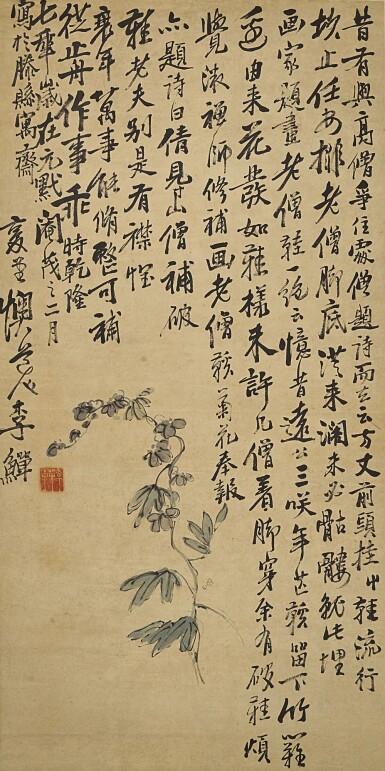 昔有與高僧爭住處僧題詩而去云方丈前頭挂草鞋流行
坎止任安排老僧脚底從來濶未必骷髏就此埋
画家題畫老僧鞋一絶云憶昔遠公三咲年芒鞋留下竹籬
邊由來花發如鞋樣未許凡僧着脚穿余有破鞋煩
覺液禪師修補画老僧鞋菊花奉報
亦題詩曰倩見山僧補破
鞋老夫別是有襟懷
衰年萬事能脩整可補
從前作事乖時乾隆
七年歲在元黓閹茂之二月
寫於滕縣寓齋
復堂懊道人李鱓